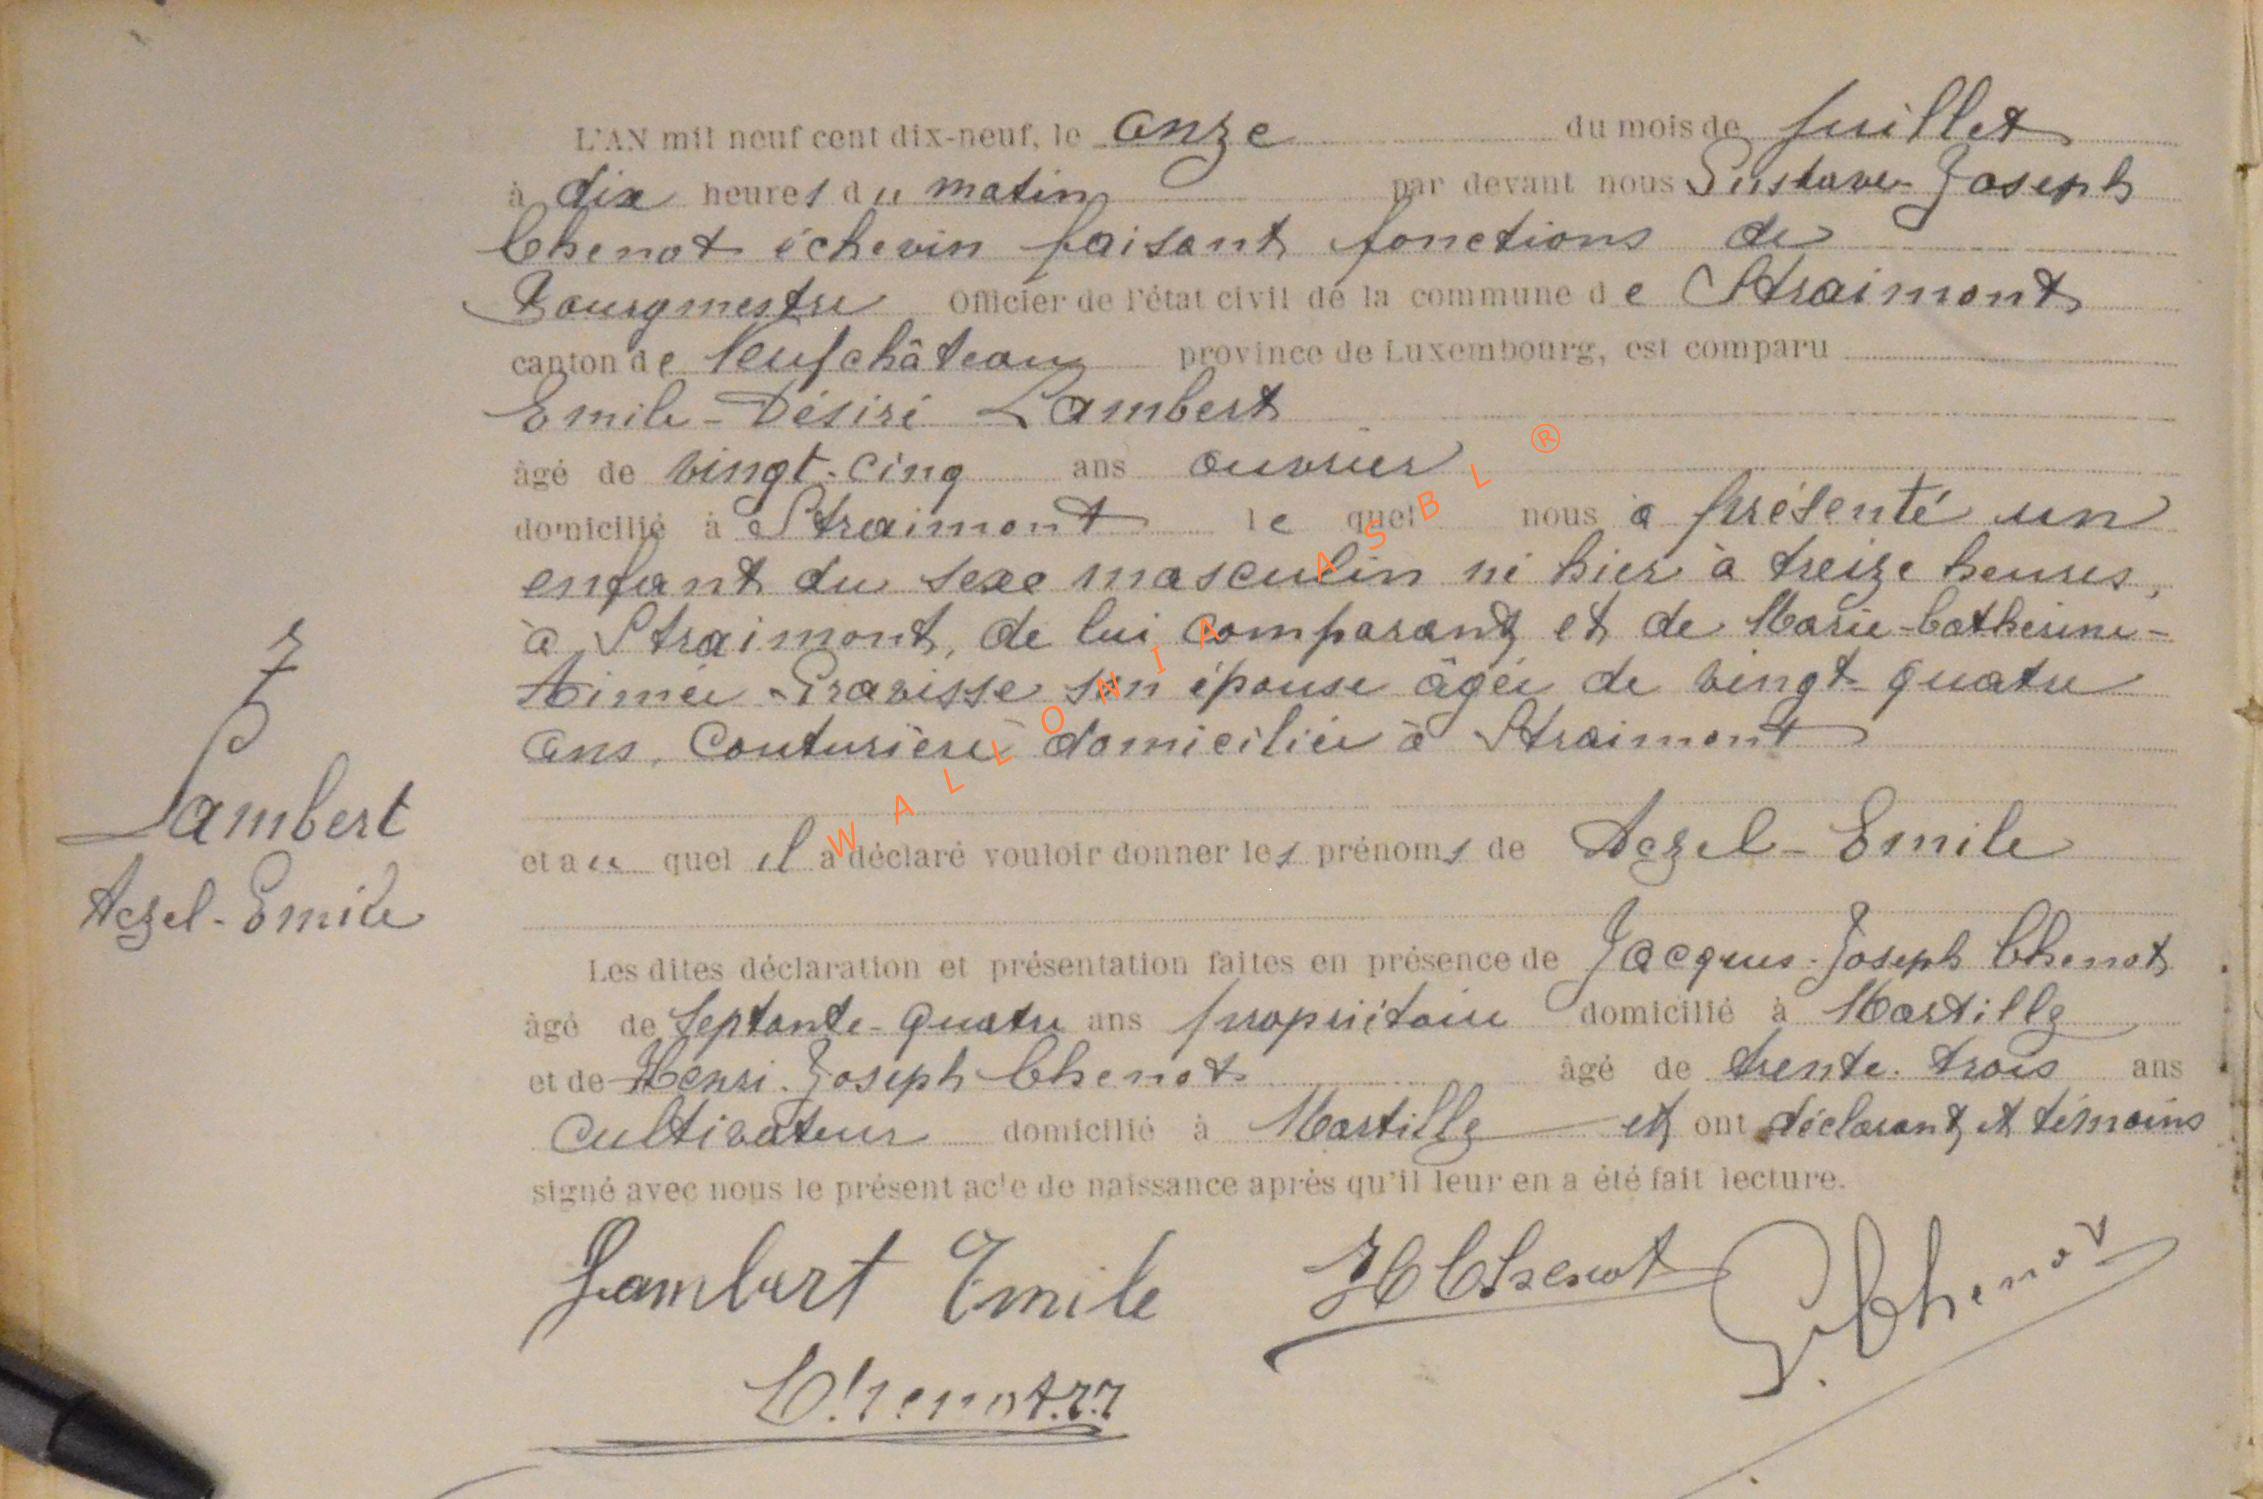 L'AN mil neuf cent dix-neuf, le onze du mois de juillet
à dix heures du matin par devant nous Gustave-Joseph
Chenot échevin faisant fonctions de
Bourgmestre Officier de l'état civil de la commune de Straimont
canton de Neufchâteau province de Luxembourg, est comparu
Emile-Désiré Lambert
âgé de vingt-cinq ans ouvrier
domicilié à Straimont le quel nous a présenté un
enfant du sexe masculin né hier à treize heures,
à Straimont, de lui comparant et de Marie-Catherine-
Aimée Gravisse son épouse âgée de vingt-quatre
ans, couturière domiciliée à Straimont
et au quel il a déclaré vouloir donner les prénoms de Aczel-Emile
Les dites déclaration et présentation faites en présence de Jacques-Joseph Chenot
âgé de septante-quatre ans propriétaire domicilié à Martilly
et de Henri-Joseph Chenot âgé de trente-trois ans
cultivateur domicilié à Martilly et ont déclarant et témoins
signé avec nous le présent acte de naissance après qu'il leur en a été fait lecture.
Lambert
Aczel-Emile
Lambert Emile H Chenot G. Chenot
Chenot J.J
WALLONIA ASBL ®